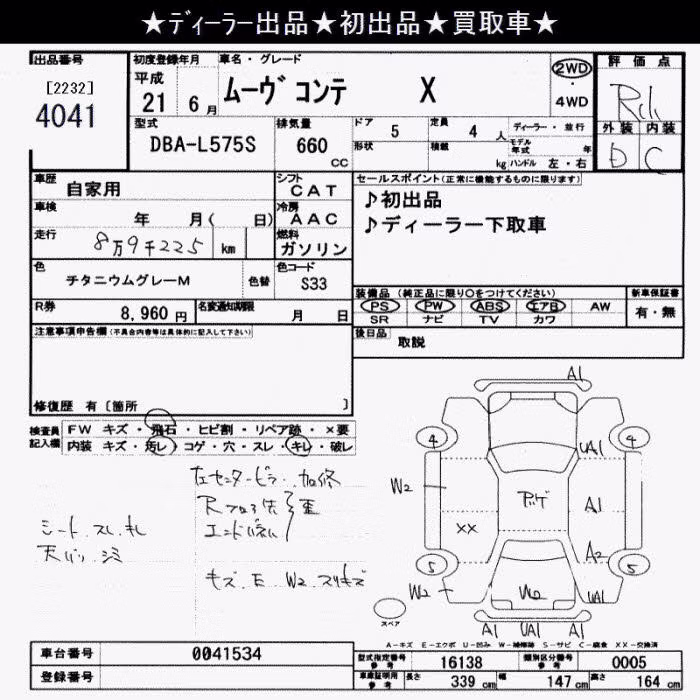 ★ディーラー出品★初出品★買取車★
出品番号
[2232]
4041
初度登録年月
平成
21 6月
車名・グレード
ムーヴ コンテ X
2WD
・
4WD
評価点
外装 内装
D C
型式
DBA-L575S
排気量
660 cc
ドア 5
定員 4 人
ディーラー・並行
形状
積載 kg
モデル年式 年
ハンドル 左・右
車歴 自家用
シフト CAT
車検 年 月( 日)
冷房 AAC
走行 8万9千225 km
燃料 ガソリン
色 チタニウムグレーM
色替
色コード S33
R券 8,960 円
名変通知期限 月 日
セールスポイント(正常に機能するものに限ります)
♪初出品
♪ディーラー下取車
装備品 (純正品に限り○をつけてください)
PS PW ABS エアB AW
SR ナビ TV カワ
新車保証書
有・無
後日品 取説
注意事項申告欄(不具合内容等は具体的に記入して下さい)
修復歴 有〔箇所 〕
検査員記入欄
FW キズ・飛石・ヒビ割・リペア跡・×要
内装 キズ・汚レ・コゲ・穴・スレ・キレ・破レ
左センターピラー 加修
シート スレ キレ
キズ.E W2 スリキズ
A1
4 4
UA1
W2
A1
XX
A2
5 5
W2 W2 UA1
スペア
A1 UA1 A1
A-キズ E-エクボ U-凹み W-補修跡 S-サビ C-腐食 XX-交換済
車台番号 0041534
登録番号
型式指定番号 参考 16138
類別区分番号 参考 0005
車庫証明用 参考 長さ 339 cm 幅 147 cm 高さ 164 cm